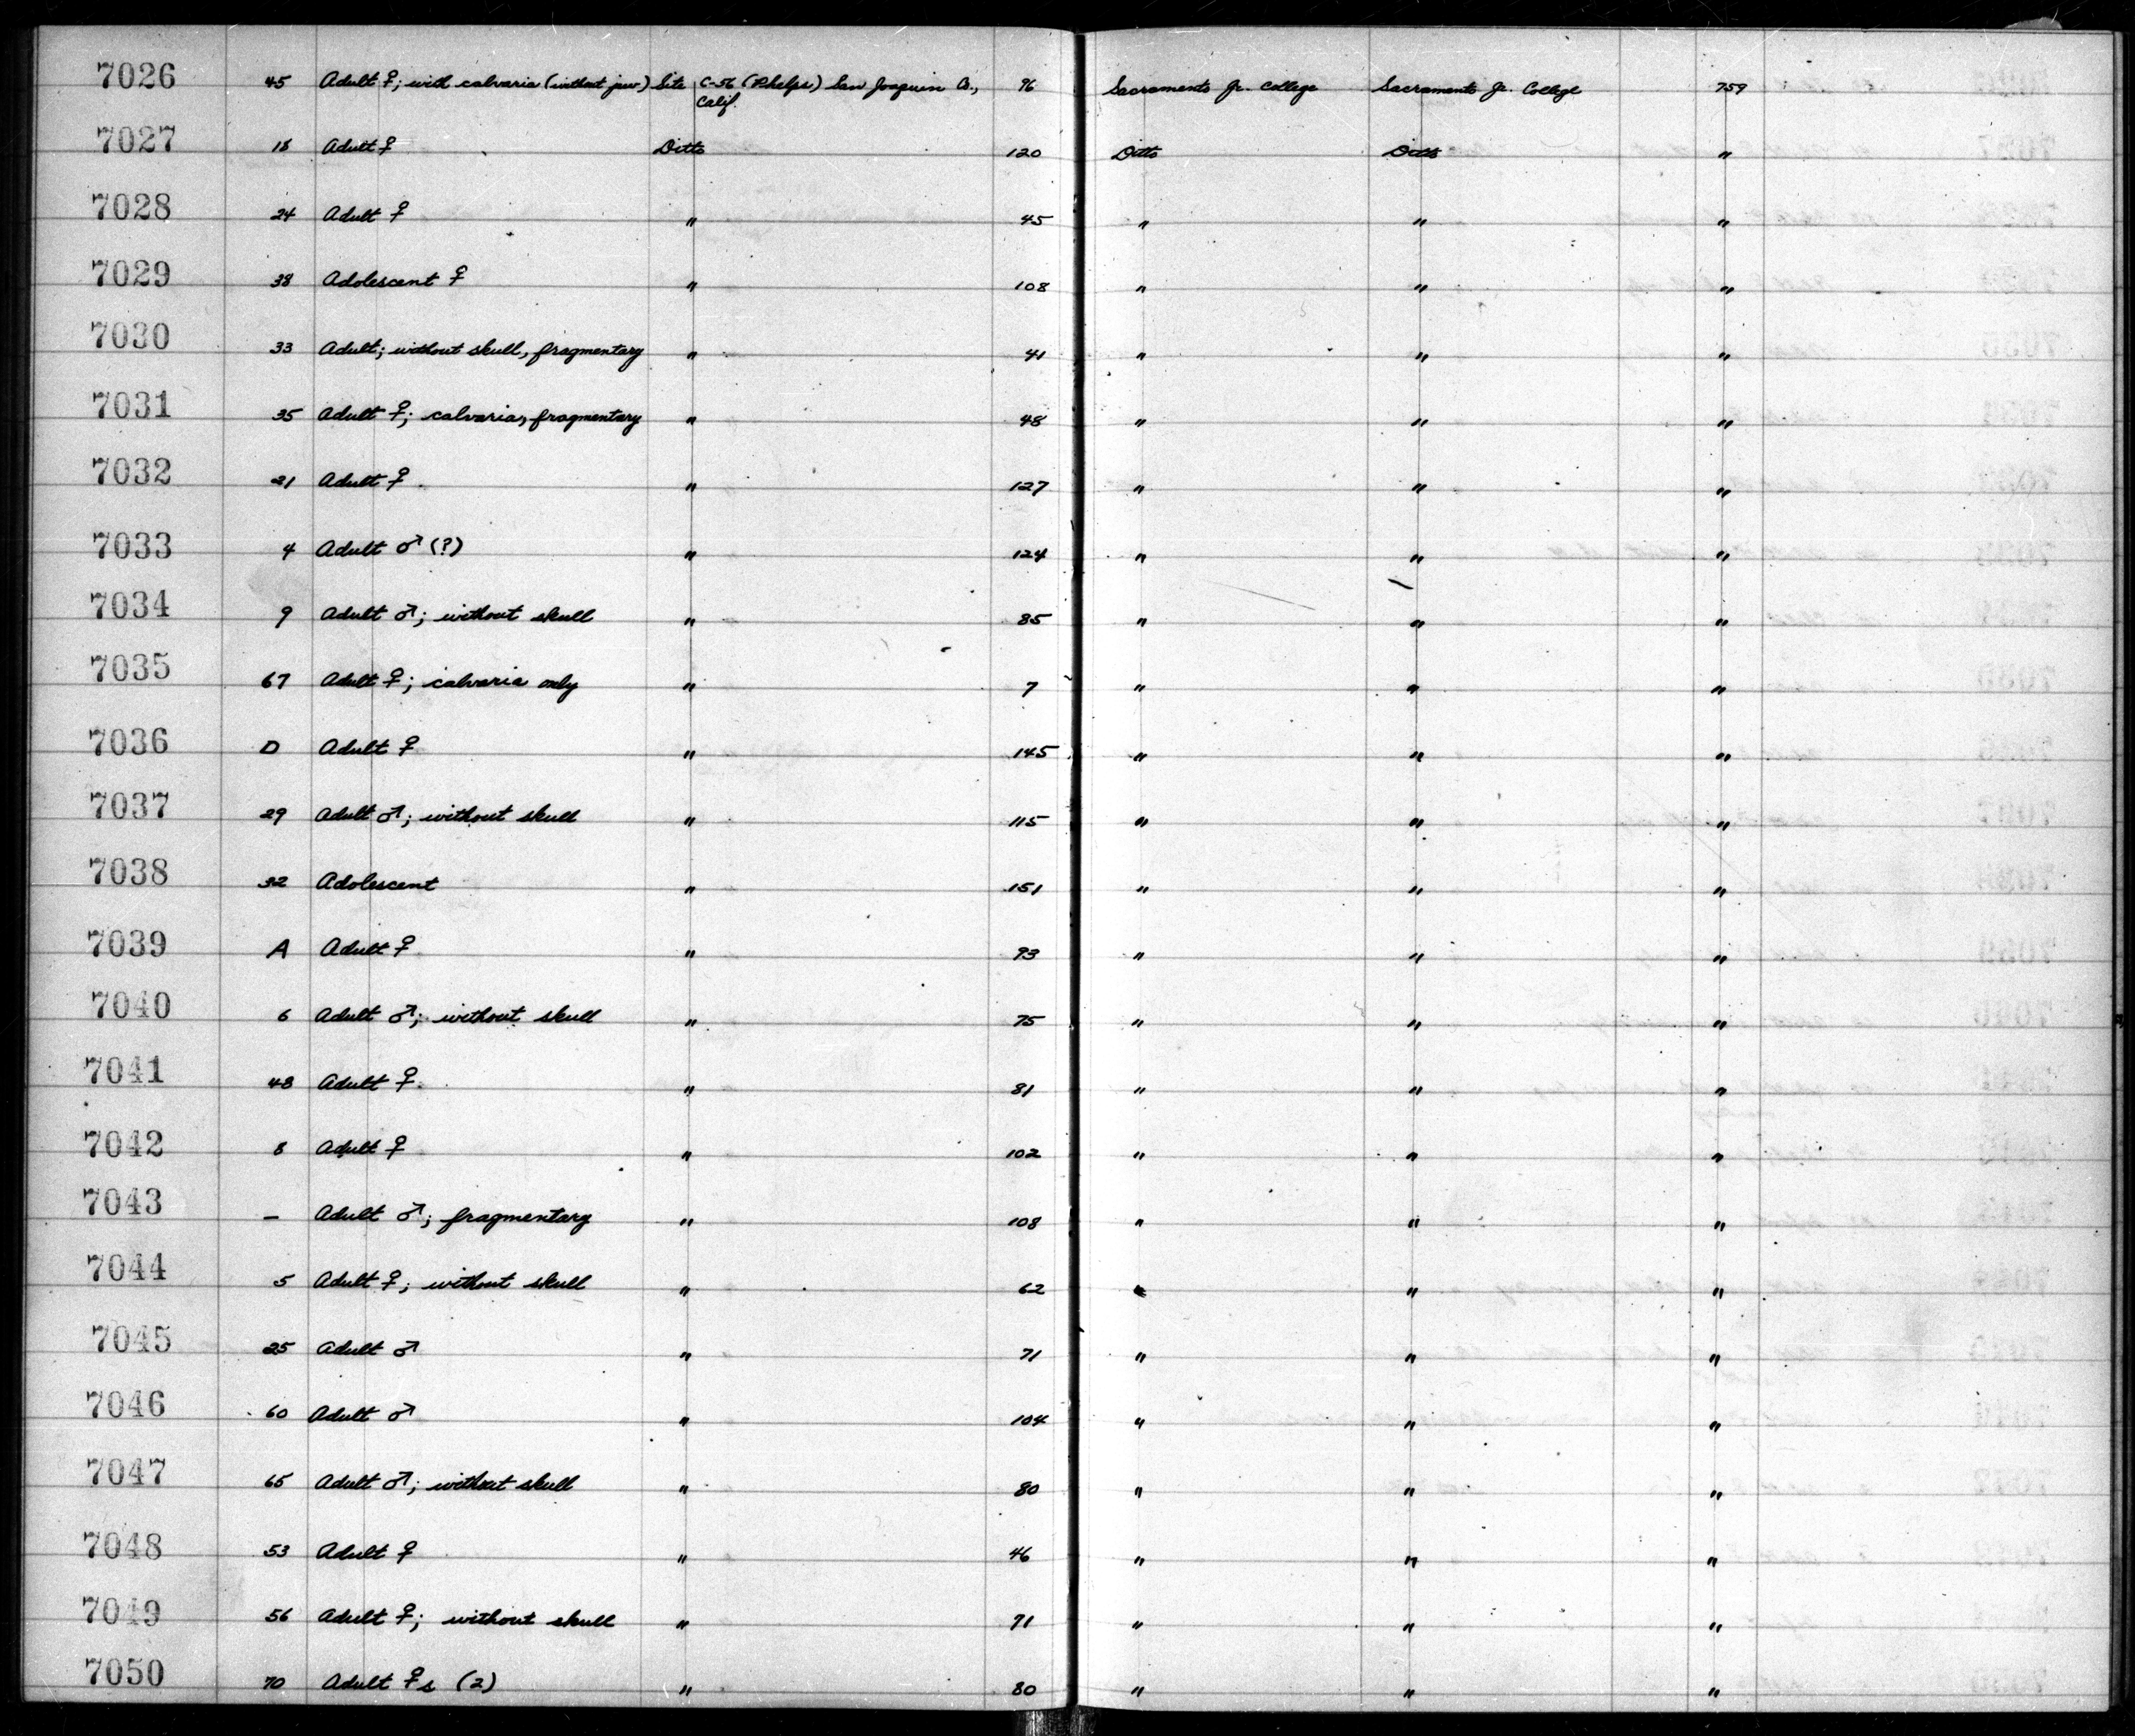 7026 45 Adult ♀; with calvaria (without jaw) Site C-56 (Phelps) San Joaquin Co., 96 Sacramento Jr. College Sacramento Jr. College 759
Calif.
7027 18 Adult ♀ Ditto 120 Ditto Ditto "
7028 24 Adult ♀ " 45 " " "
7029 38 Adolescent ♀ " 108 " " "
7030 33 Adult; without skull, fragmentary " 41 " " "
7031 35 Adult ♀; calvaria, fragmentary " 48 " " "
7032 21 Adult ♀ " 127 " " "
7033 4 Adult ♂ (?) " 124 " " "
7034 9 Adult ♂; without skull " 85 " " "
7035 67 Adult ♀; calvaria only " 7 " " "
7036 D Adult ♀ " 145 " " "
7037 29 Adult ♂; without skull " 115 " " "
7038 32 Adolescent " 151 " " "
7039 A Adult ♀ " 93 " " "
7040 6 Adult ♂; without skull " 75 " " "
7041 48 Adult ♀ " 81 " " "
7042 8 Adult ♀ " 102 " " "
7043 — Adult ♂; fragmentary " 108 " " "
7044 5 Adult ♀; without skull " 62 " " "
7045 25 Adult ♂ " 71 " " "
7046 60 Adult ♂ " 104 " " "
7047 65 Adult ♂; without skull " 80 " " "
7048 53 Adult ♀ " 46 " " "
7049 56 Adult ♀; without skull " 71 " " "
7050 70 Adult ♀s (2) " 80 " " "